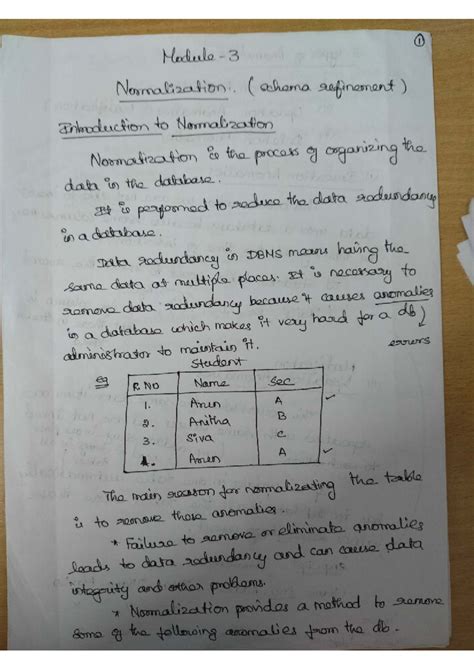 1
Module - 3
Normalization. (schema refinement)
Introduction to Normalization
Normalization is the process of organizing the
data in the database.
It is performed to reduce the data redundancy
in a database.
Data redundancy in DBMS means having the
same data at multiple places. It is necessary to
remove data redundancy because it causes anomalies
in a database which makes it very hard for a db
administrator to maintain it.
errors
Student
eg
R.NO Name Sec
1. Arun A
2. Anitha B
3. Siva C
4. Arun A
The main reason for normalizating the table
is to remove these anomalies.
* Failure to remove or eliminate anomalies
leads to data redundancy and can cause data
integrity and other problems.
* Normalization provides a method to remove
some of the following anomalies from the db.